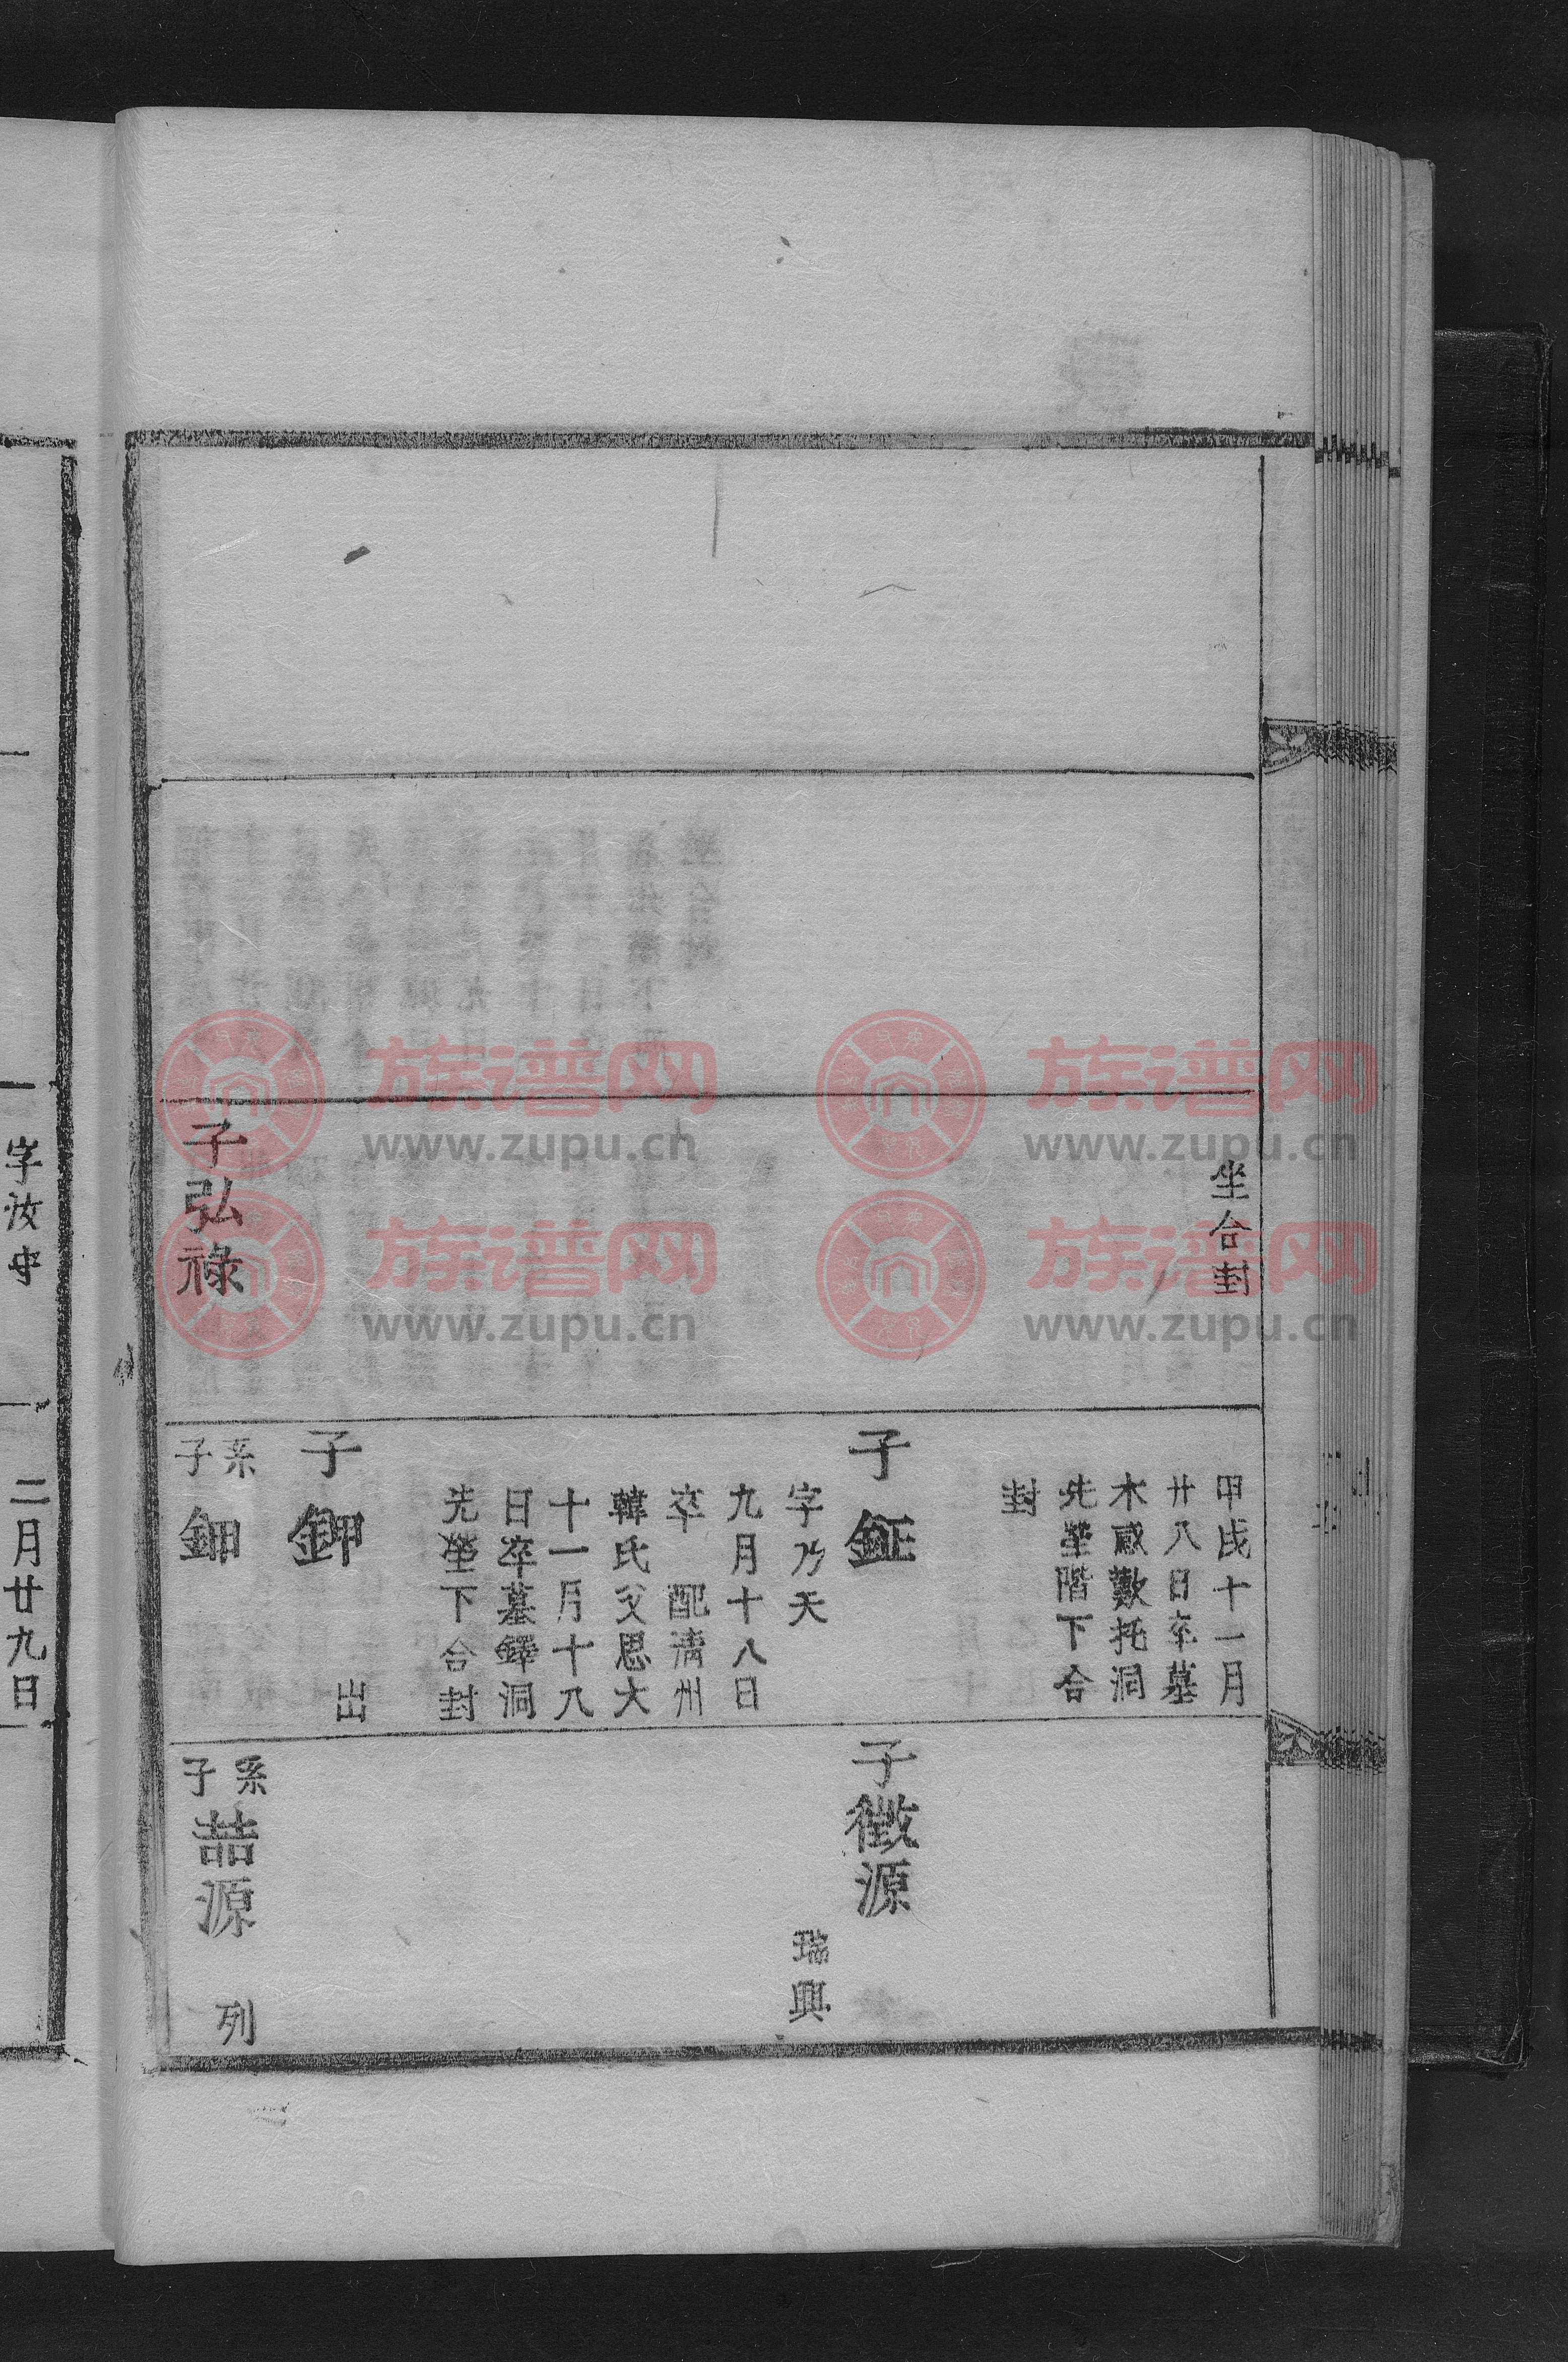 坐合封
子弘祿
甲戌十一月
廿八日卒墓
木咸歎托洞
先塋階下合
封
子鉦
字乃天
九月十八日
卒 配淸州
韓氏父思大
十一月十八
日卒墓鐸洞
先塋下合封
子鉀
出
系
子鈿
子徵源
瑞興
系
子喆源
列
字汝中
二月廿九日
族谱网
www.zupu.cn
族谱网
www.zupu.cn
族谱网
www.zupu.cn
族谱网
www.zupu.cn